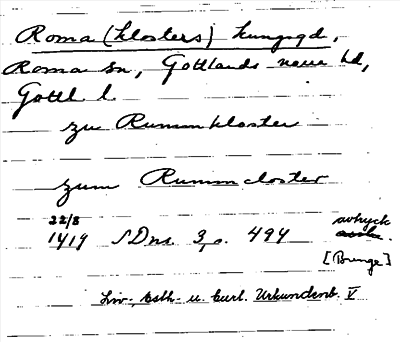 Roma (klosters) kungsgd,
Roma sn, Gottlands norra hd,
Gottl. l.
zu Rummkloster
zum Rummcloster
22/8
1419 SDns 3, s. 494 avtryck
[Bunge]
Liv-, Esth- u. Curl. Urkundenb. V